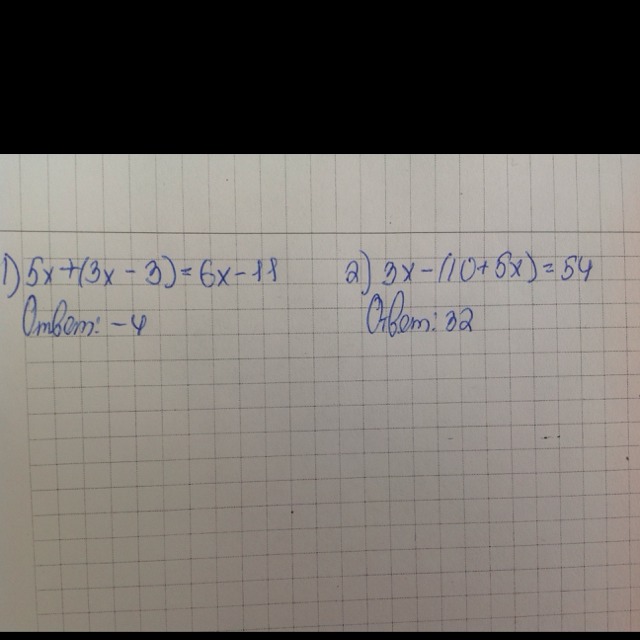 1) 5x+(3x-3)=6x-11
Ответ: -4
2) 3x-(10+5x)=54
Ответ: 32